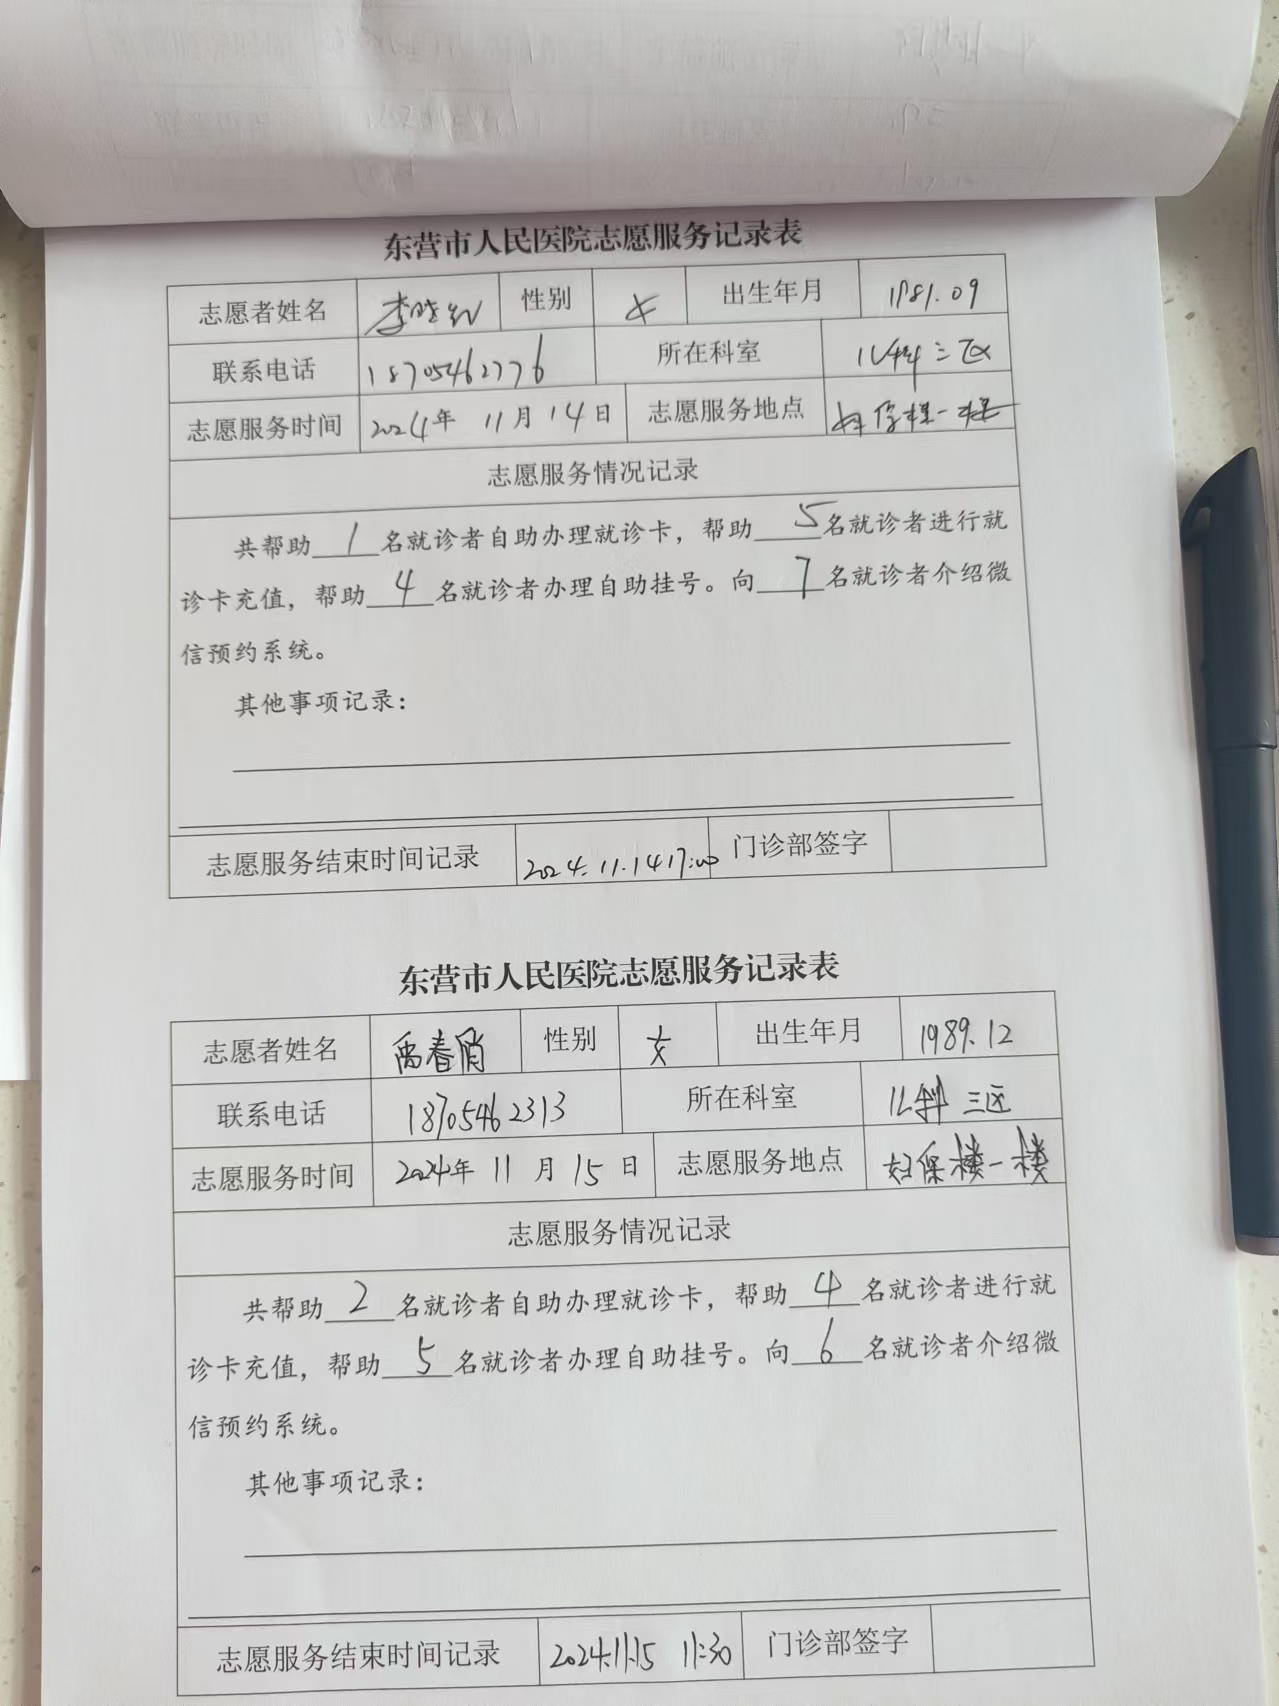 东营市人民医院志愿服务记录表
志愿者姓名 李晓红 性别 女 出生年月 1981.09
联系电话 18705462776 所在科室 儿科三区
志愿服务时间 2024年 11月 14日 志愿服务地点 妇保楼一楼
志愿服务情况记录
共帮助 1 名就诊者自助办理就诊卡，帮助 5 名就诊者进行就
诊卡充值，帮助 4 名就诊者办理自助挂号。向 7 名就诊者介绍微
信预约系统。
其他事项记录：
志愿服务结束时间记录 2024.11.14 17:00 门诊部签字
东营市人民医院志愿服务记录表
志愿者姓名 禹春俏 性别 女 出生年月 1989.12
联系电话 18705462313 所在科室 儿科三区
志愿服务时间 2024年 11月 15日 志愿服务地点 妇保楼一楼
志愿服务情况记录
共帮助 2 名就诊者自助办理就诊卡，帮助 4 名就诊者进行就
诊卡充值，帮助 5 名就诊者办理自助挂号。向 6 名就诊者介绍微
信预约系统。
其他事项记录：
志愿服务结束时间记录 2024.11.15 11:30 门诊部签字